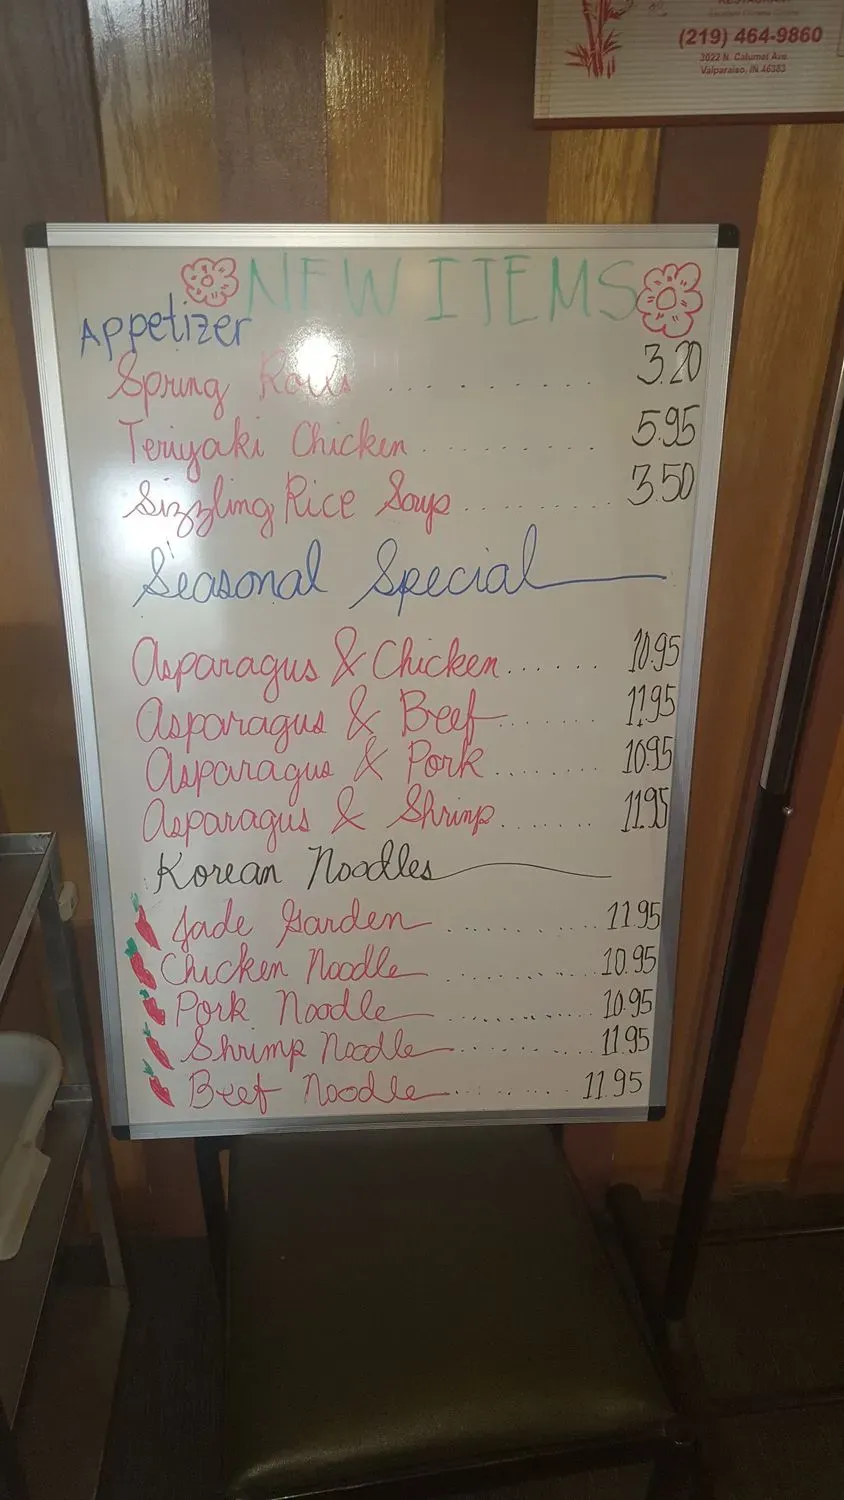 RESTAURANT
(219) 464-9860
2022 N. Calumet Ave.
Valparaiso, IN 46383
NEW ITEMS
Appetizer
Spring Rolls .......... 3.20
Teriyaki Chicken .......... 5.95
Sizzling Rice Soup .......... 3.50
Seasonal Special
Asparagus & Chicken ...... 10.95
Asparagus & Beef ....... 11.95
Asparagus & Pork ........ 10.95
Asparagus & Shrimp ....... 11.95
Korean Noodles
Jade Garden .......... 11.95
Chicken Noodle .......... 10.95
Pork Noodle .......... 10.95
Shrimp Noodle .......... 11.95
Beef Noodle .......... 11.95